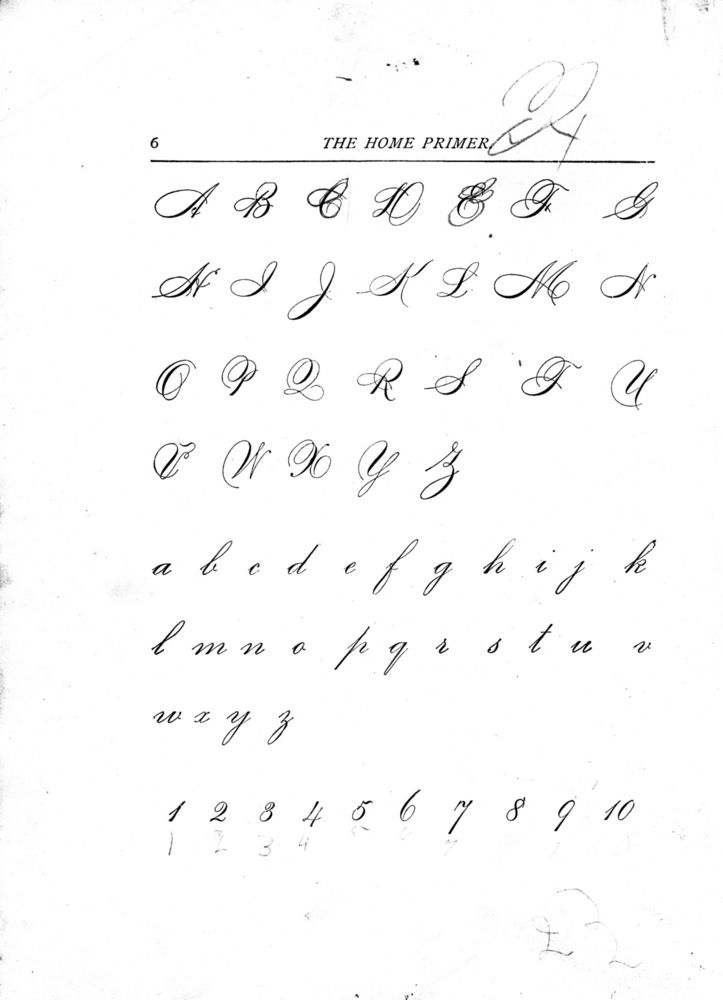 6 THE HOME PRIMER
A B C D E F G
H I J K L M N
O P Q R S T U
V W X Y Z
a b c d e f g h i j k
l m n o p q r s t u v
w x y z
1 2 3 4 5 6 7 8 9 10
1 2 3 4